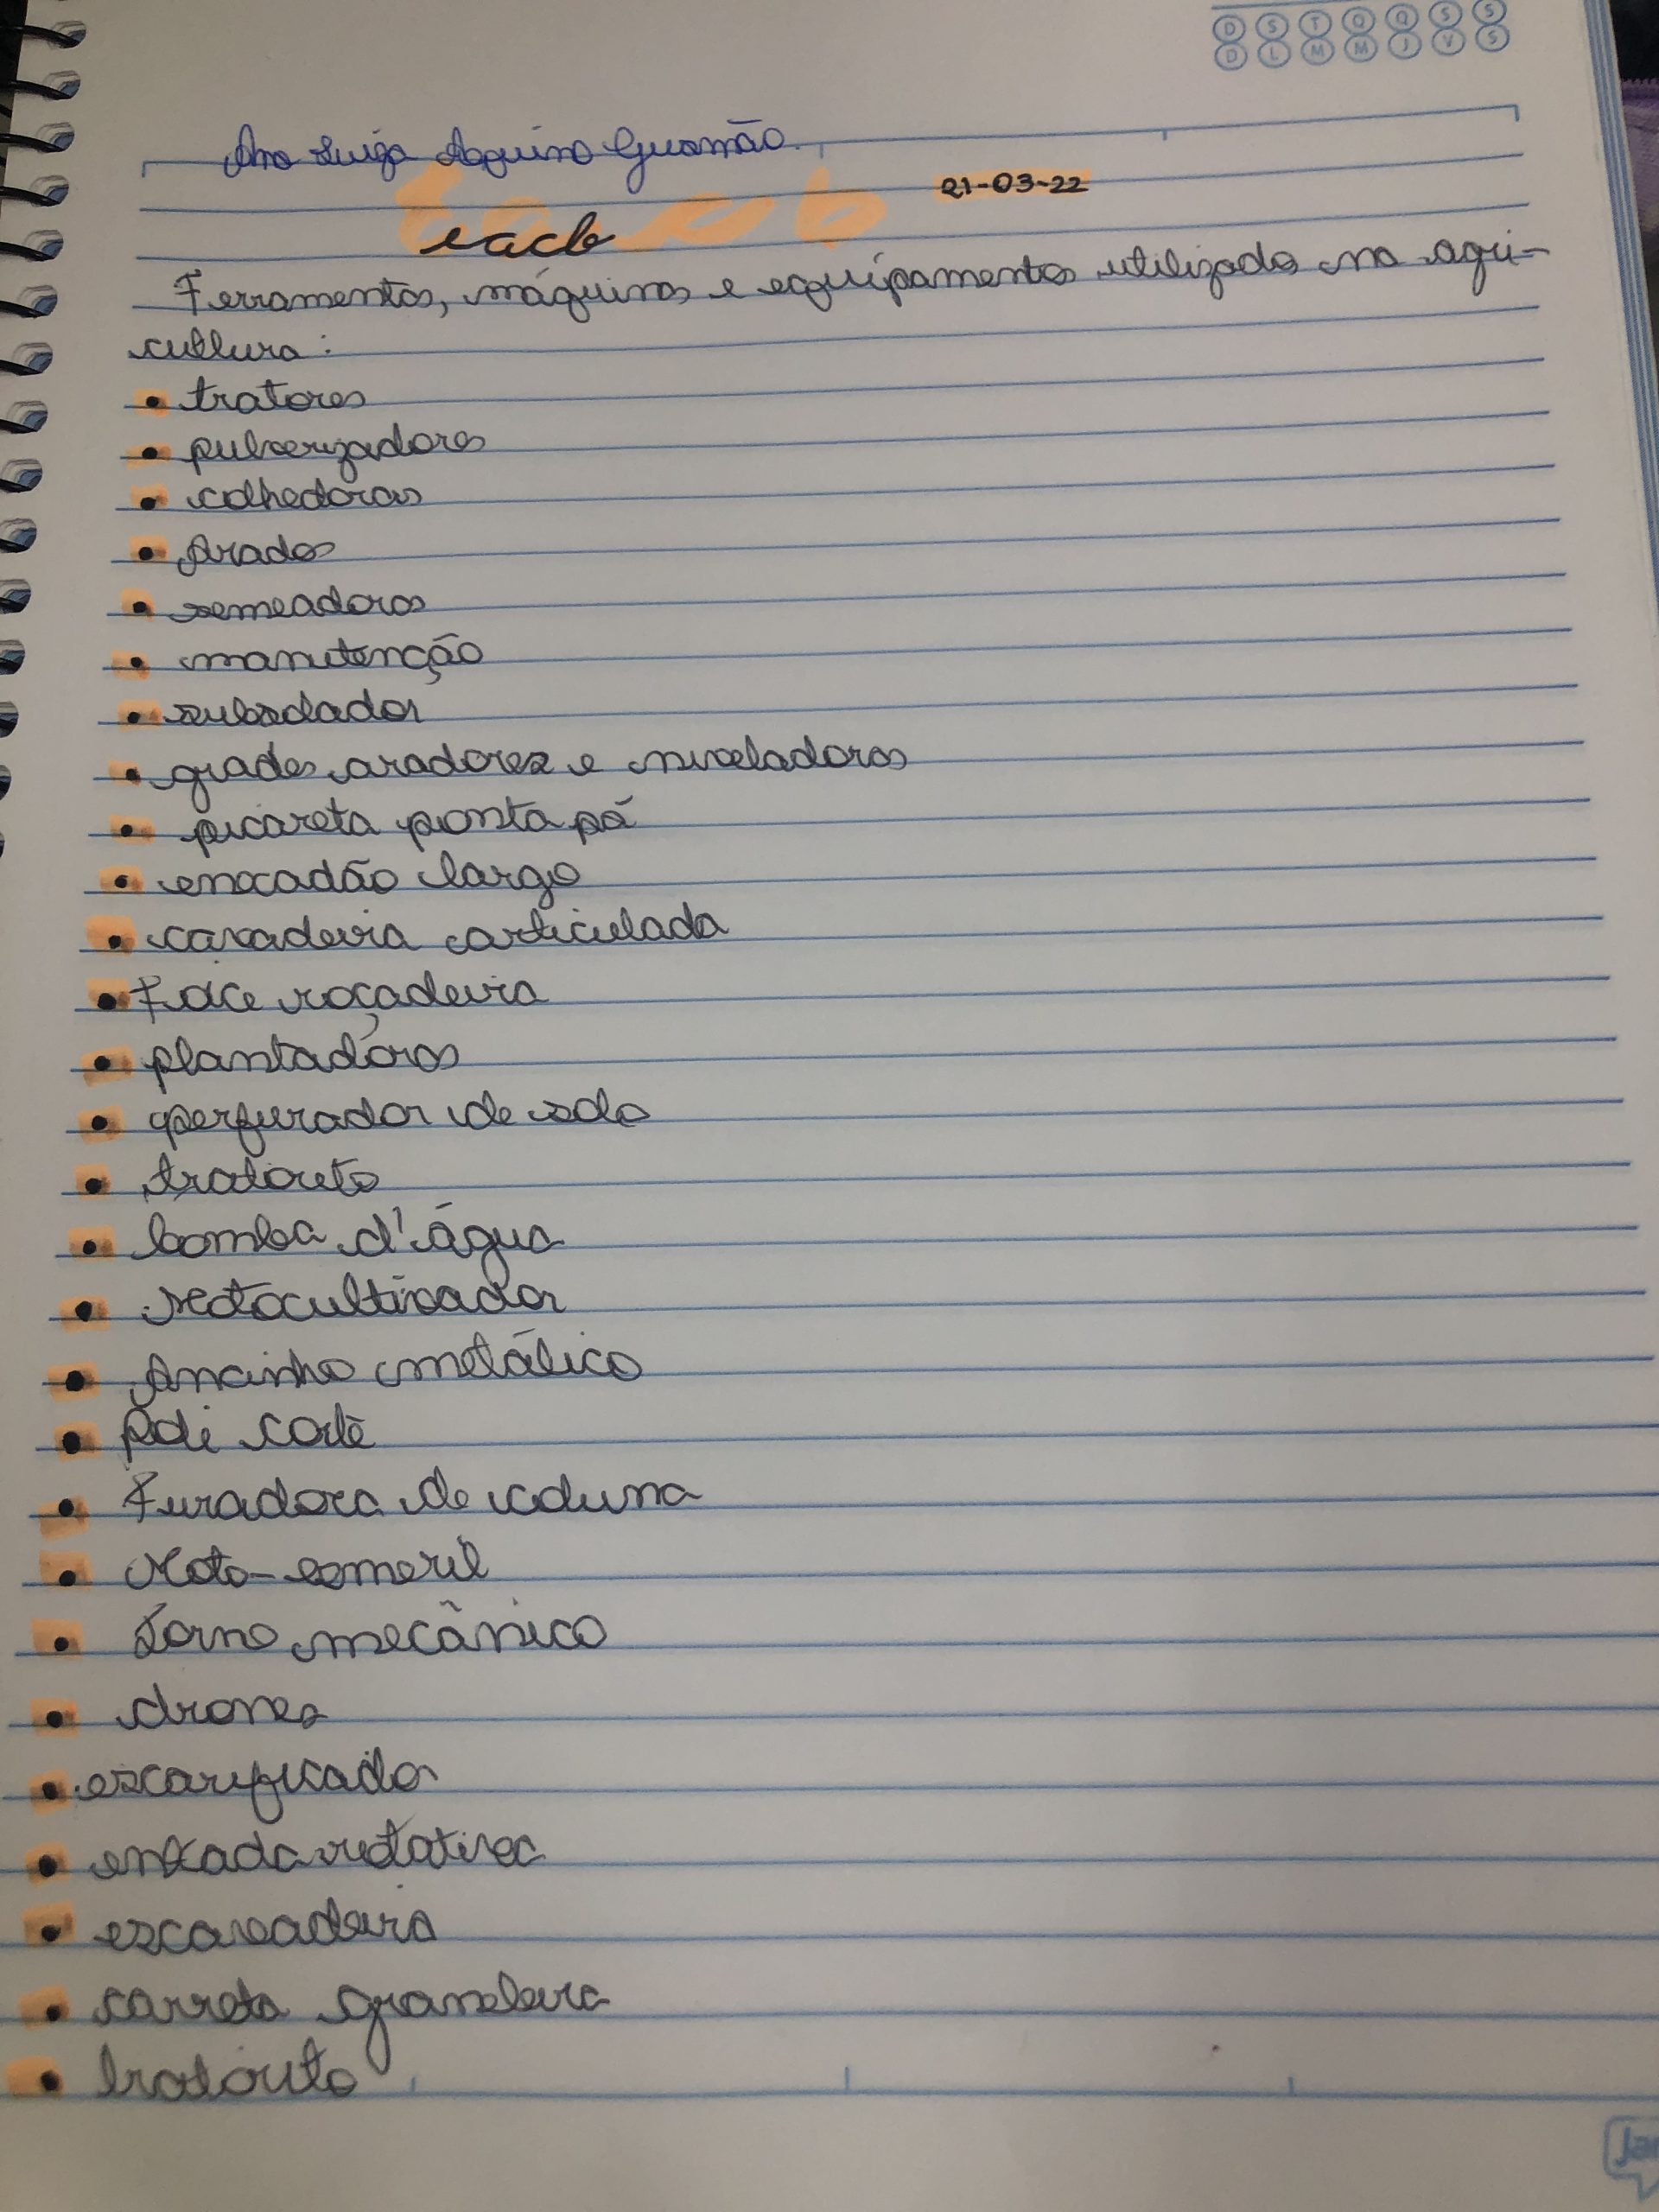 D S T Q Q S S
D L M M J V S
Ana Luiza Aquino Gusmão.
21-03-22
eacb
Ferramentas, máquinas e equipamentos utilizados na agri-
cultura:
• tratores
• pulverizadores
• colhedoras
• Arados
• semeadoras
• manutenção
• subsolador
• grades aradores e niveladoras
• picareta ponta pá
• enxadão largo
• cavadeira articulada
• Foice roçadeira
• plantadoras
• perfurador de solo
• tratorito
• bomba d'água
• Motocultivador
• Ancinho metálico
• Poli corte
• Furadora de coluna
• Moto-esmeril
• Torno mecânico
• drones
• escarificador
• enxada rotativa
• escavadeira
• carreta graneleira
• tratorito